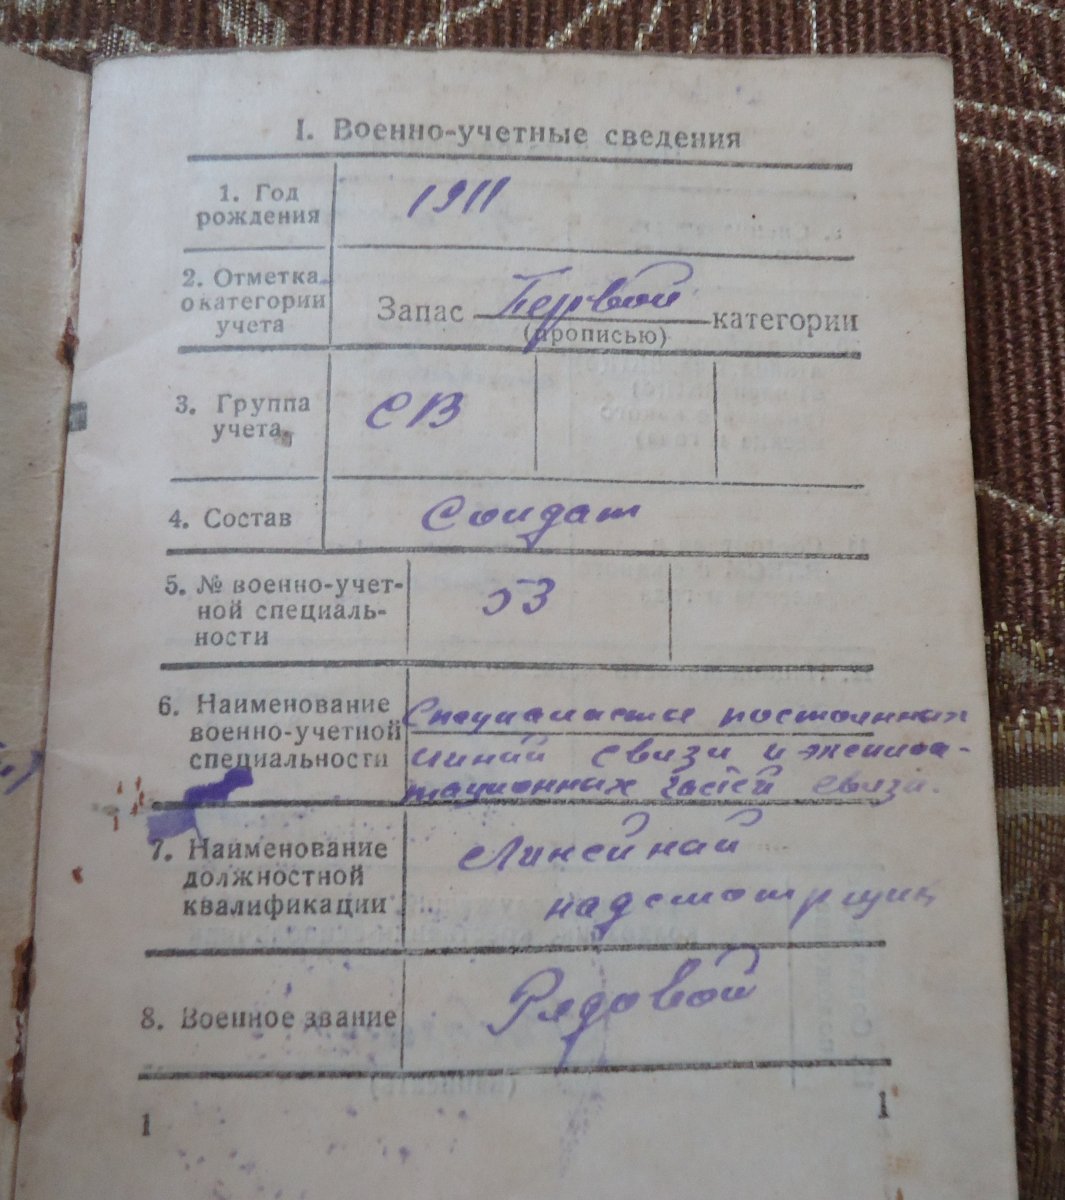 I. Военно-учетные сведения
1. Год
рождения
1911
2. Отметка
о категории
учета
Запас Первой категории
(прописью)
3. Группа
учета
СВ
4. Состав
Солдат
5. № военно-учет-
ной специаль-
ности
53
6. Наименование
военно-учетной
специальности
Специалисты постоянных
линий связи и эксплоа-
тационных частей связи.
7. Наименование
должностной
квалификации
Линейный
надсмотрщик
8. Военное звание
Рядовой
1
1